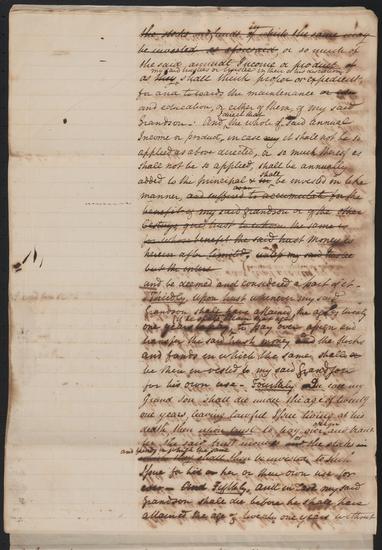 the stocks and funds in which the same may
be invested as aforesaid or so much of
the said annual Income or product of
my said trustees or trustee in their or his discretion
as they shall think proper or expedient
for and towards the maintenance
and education, or either of them, of my said
Grandson. And, the whole of said annual
Income or product, in case it shall not be so
applied as above directed, or so much thereof as
shall not be so applied, shall be annually
added to the principal shall be invested in like
manner, and suffered to accumulate for the
benefit of my said grandson or of the other
for whose benefit the said trust money is
herein after limited,
but the entire
and be deemed and considered a part of it.
Thirdly, upon trust whenever my said
Grandson shall have attained the age of twenty
one years to pay over assign and
transfer the said trust money and the stocks
and funds in which the same shall
be then invested to my said Grandson
for his own use. Fourthly in case my
Grand Son shall die under the age of twenty
one years, leaving lawful Issue living at his
death then upon trust to pay, assign over and trans
fer the said trust monies the stocks
and funds in which the same
then be invested to such
Issue for his or her or their own use for
ever. And Fifthly, and in case my said
Grandson shall die before he shall have
attained the age of twenty one years without